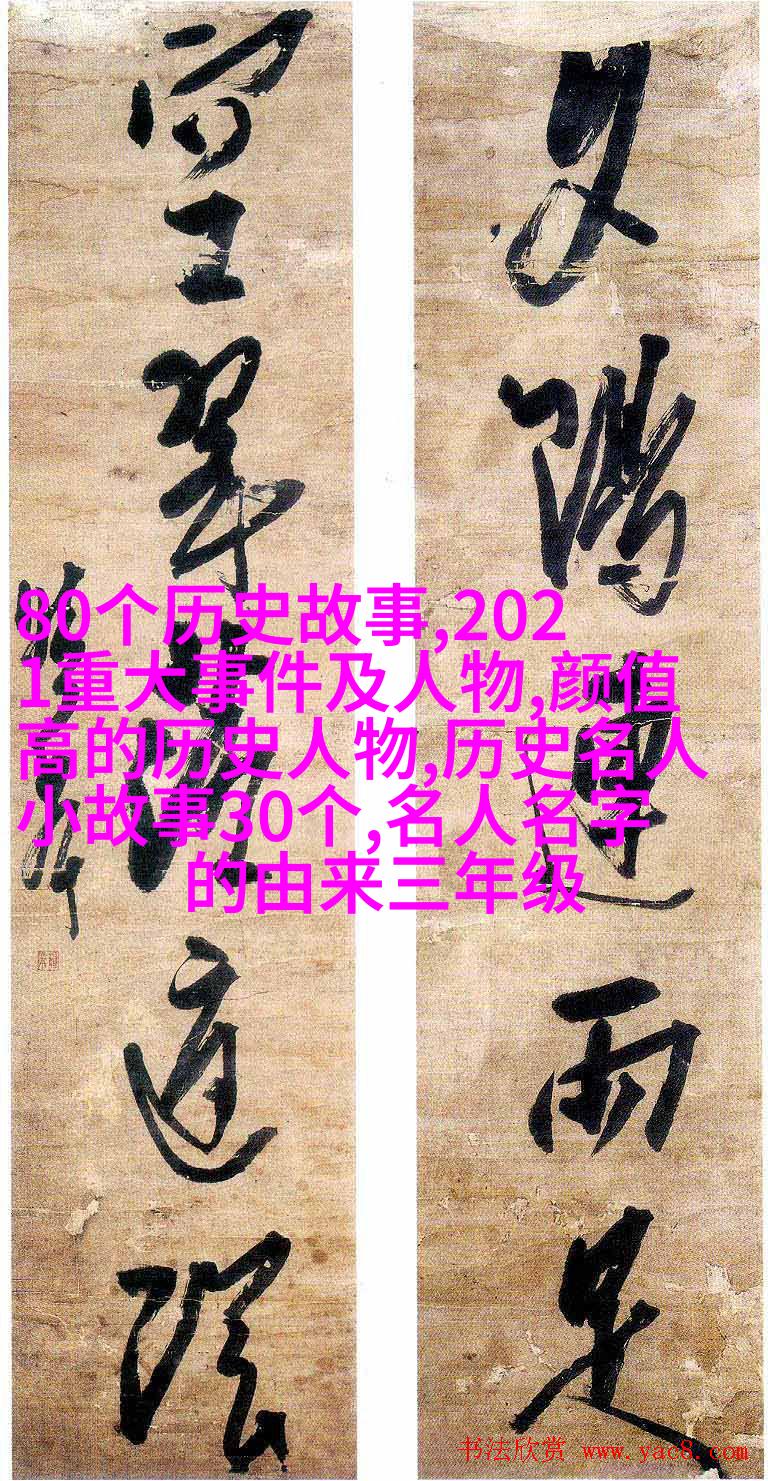 夕陽連雨足
空翠落庭陰
80个历史故事,202
1重大事件及人物,颜值
高的历史人物,历史名人
小故事30个,名人名字
的由来三年级
书法欣赏 www.yac8.com